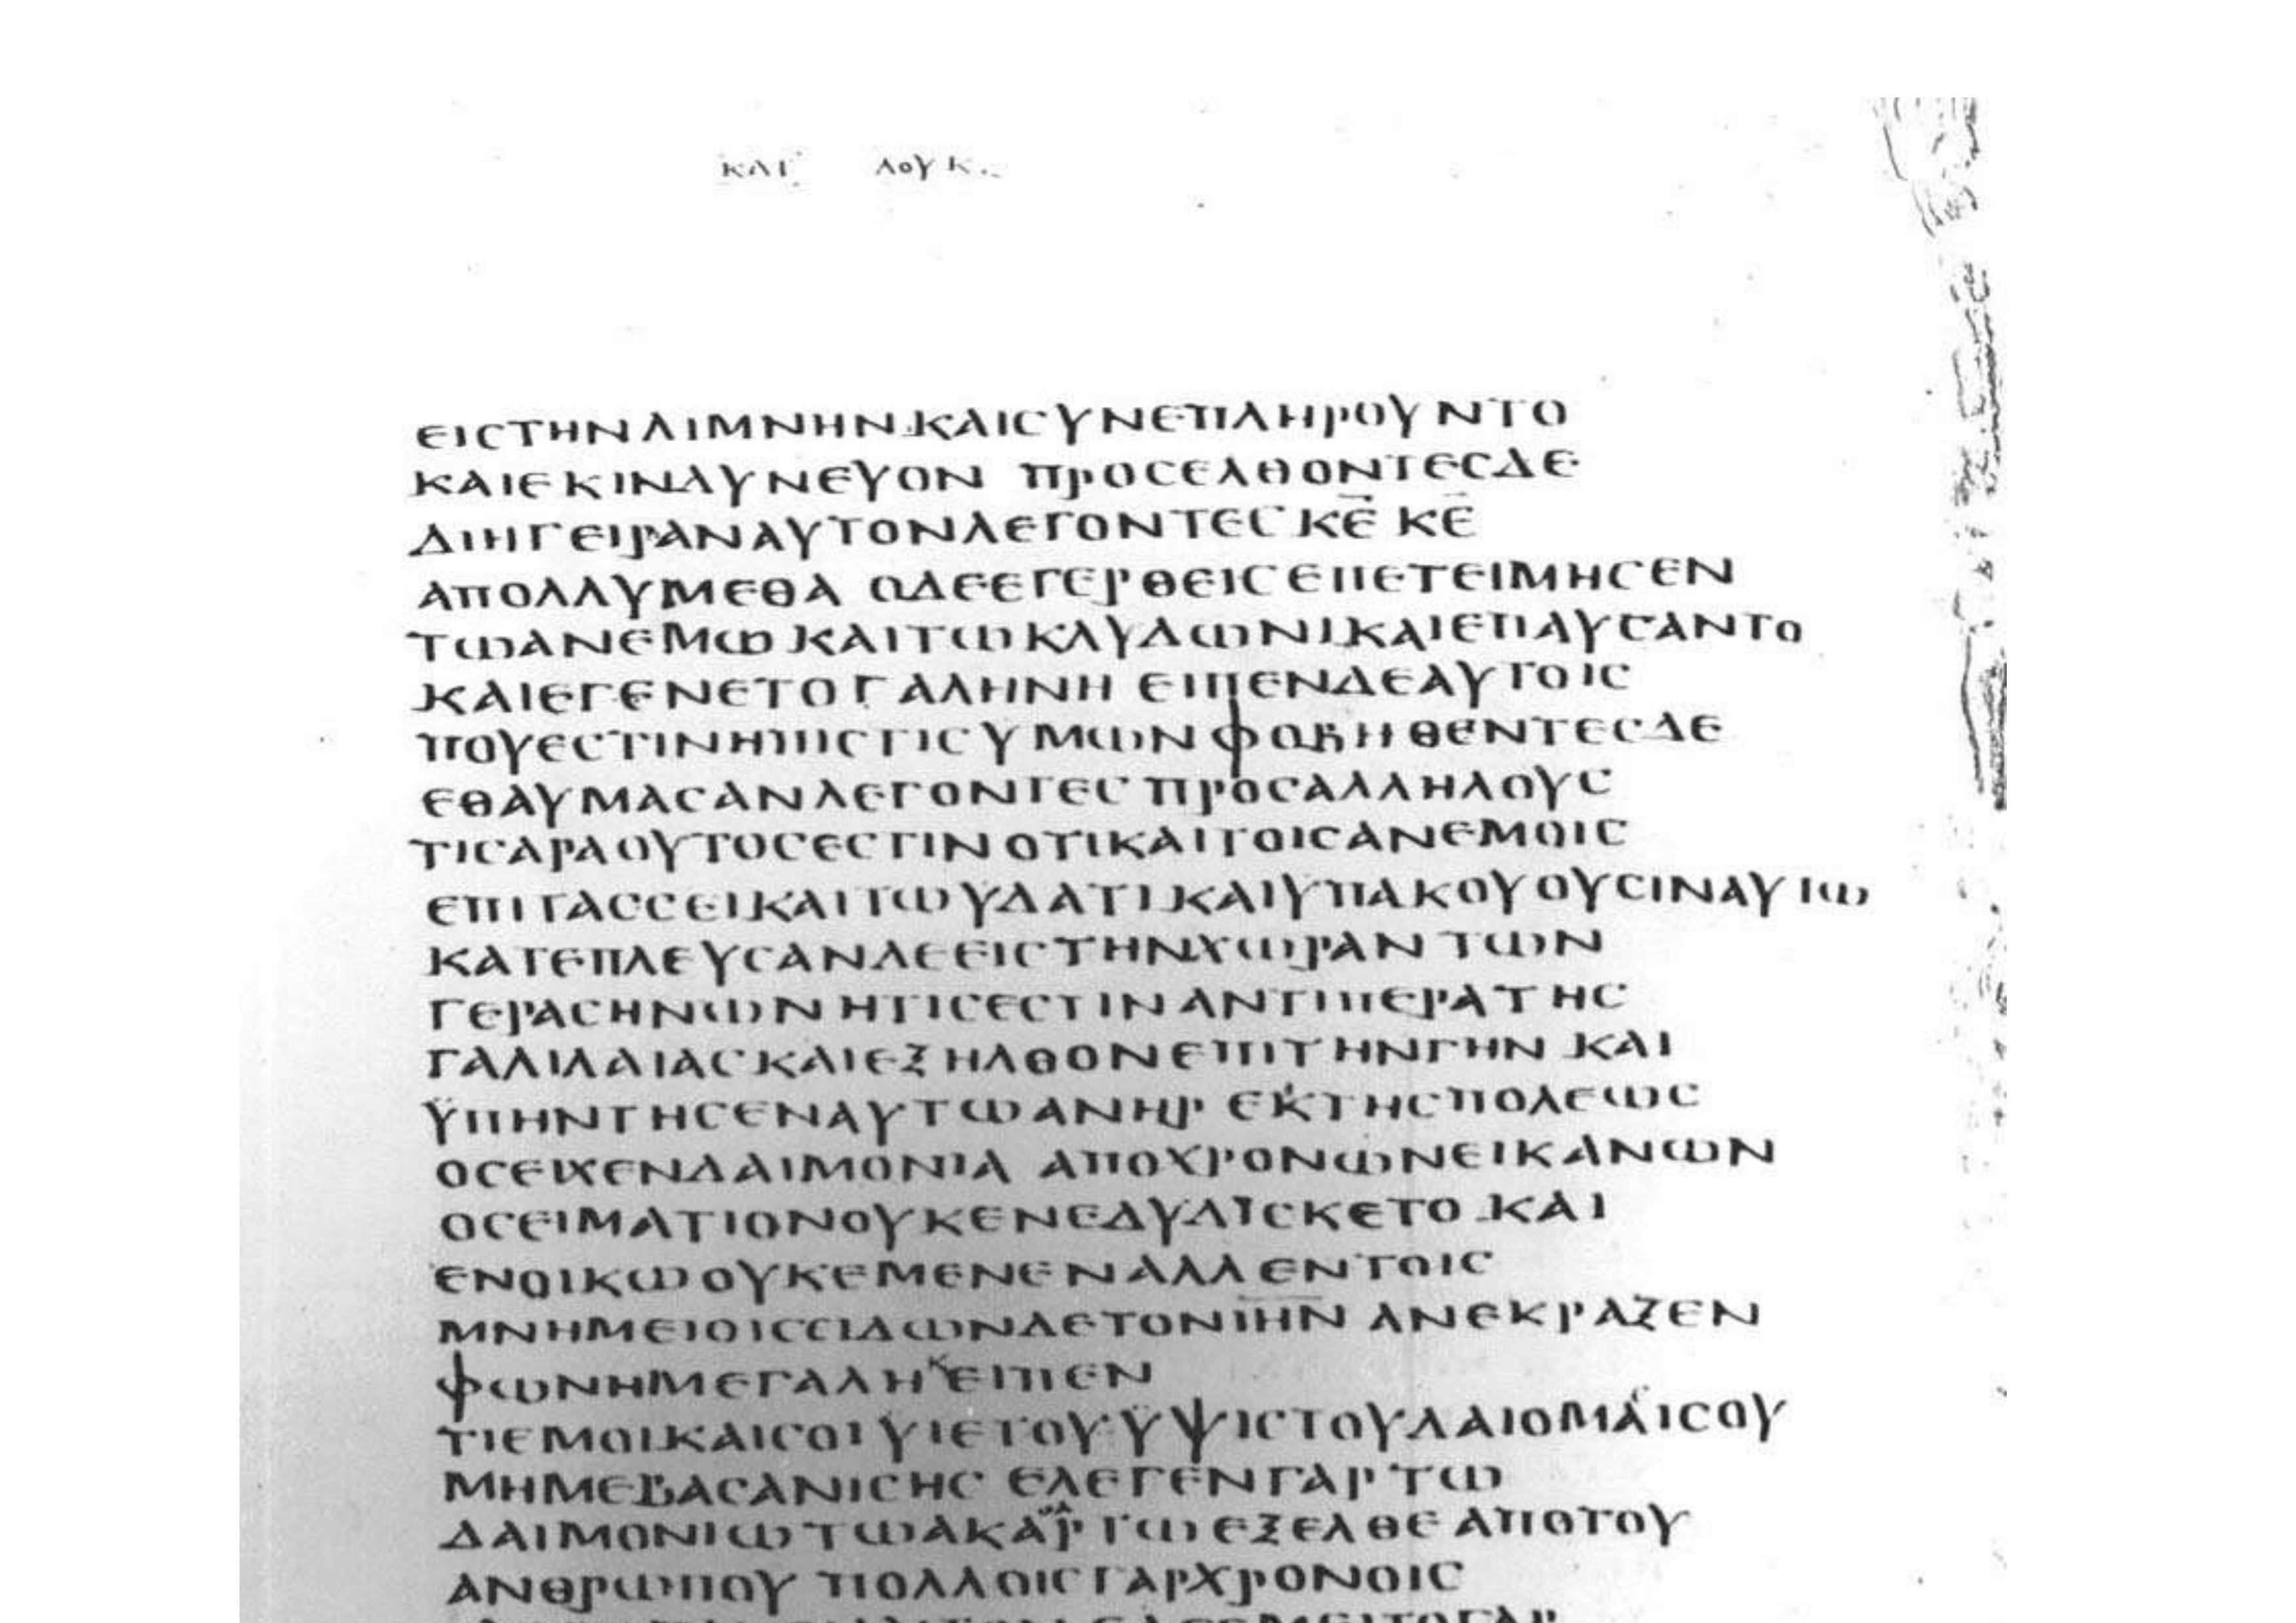 ΚΑΤ ΛΟΥΚ
ΕΙCΤΗΝΛΙΜΝΗΝΚΑΙCΥΝΕΠΛΗΡΟΥΝΤΟ
ΚΑΙΕΚΙΝΔΥΝΕΥΟΝ ΠΡΟCΕΛΘΟΝΤΕCΔΕ
ΔΙΗΓΕΙΡΑΝΑΥΤΟΝΛΕΓΟΝΤΕC Κ̅Ε̅ Κ̅Ε̅
ΑΠΟΛΛΥΜΕΘΑ ΟΔΕΕΓΕΡΘΕΙCΕΠΕΤΕΙΜΗCΕΝ
ΤΩΑΝΕΜΩ ΚΑΙΤΩΚΛΥΔΩΝΙΚΑΙΕΠΑΥCΑΝΤΟ
ΚΑΙΕΓΕΝΕΤΟΓΑΛΗΝΗ ΕΙΠΕΝΔΕΑΥΤΟΙC
ΠΟΥΕCΤΙΝΗΠΙCΤΙCΥΜΩΝ ΦΟΒΗΘΕΝΤΕCΔΕ
ΕΘΑΥΜΑCΑΝΛΕΓΟΝΤΕC ΠΡΟCΑΛΛΗΛΟΥC
ΤΙCΑΡΑΟΥΤΟCΕCΤΙΝ ΟΤΙΚΑΙΤΟΙCΑΝΕΜΟΙC
ΕΠΙΤΑCCΕΙΚΑΙΤΩΥΔΑΤΙΚΑΙΥΠΑΚΟΥΟΥCΙΝΑΥΤΩ
ΚΑΤΕΠΛΕΥCΑΝΔΕΕΙCΤΗΝΧΩΡΑΝ ΤΩΝ
ΓΕΡΑCΗΝΩΝ ΗΤΙCΕCΤΙΝ ΑΝΤΙΠΕΡΑΤΗC
ΓΑΛΙΛΑΙΑC ΚΑΙΕΞΗΛΘΟΝΕΠΙΤΗΝΓΗΝ ΚΑΙ
ΫΠΗΝΤΗCΕΝΑΥΤΩΑΝΗΡ ΕΚΤΗCΠΟΛΕΩC
ΟCΕΙΧΕΝΔΑΙΜΟΝΙΑ ΑΠΟΧΡΟΝΩΝΕΙΚΑΝΩΝ
ΟCΕΙΜΑΤΙΟΝΟΥΚΕΝΕΔΥΔΙCΚΕΤΟ ΚΑΙ
ΕΝΟΙΚΩΟΥΚΕΜΕΝΕΝΑΛΛ ΕΝΤΟΙC
ΜΝΗΜΕΙΟΙCCΙΔΩΝΔΕΤΟΝΙ̅Η̅Ν̅ ΑΝΕΚΡΑΖΕΝ
ΦΩΝΗΜΕΓΑΛΗ ΚΕΙΠΕΝ
ΤΙΕΜΟΙΚΑΙCΟΙΥΙΕΤΟΥΫΨΙCΤΟΥΔΑΙΟΜΑΙCΟΥ
ΜΗΜΕΒΑCΑΝΙCΗC ΕΛΕΓΕΝΓΑΡ ΤΩ
ΔΑΙΜΟΝΙΩΤΩΑΚΑΡΤΩ ΕΞΕΛΘΕ ΑΠΟΤΟΥ
ΑΝΘΡΩΠΟΥ ΠΟΛΛΟΙCΓΑΡΧΡΟΝΟΙC